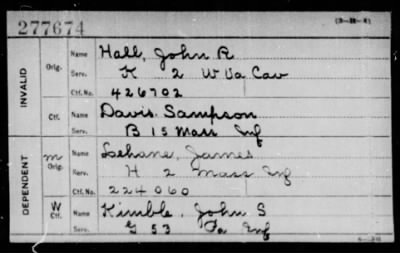 277674
(3-1081)
INVALID
Orig. Name Hall, John R
Serv. K 2 W Va Cav
Ctf. No. 426702
Ctf. Name Davis. Sampson
Serv. B 15 Mass Inf
DEPENDENT
M Orig. Name Lehane, James
Serv. H 2 Mass Inf
Ctf. No. 224060
W Ctf. Name Kimble, John S
Serv. G 53 Pa Inf